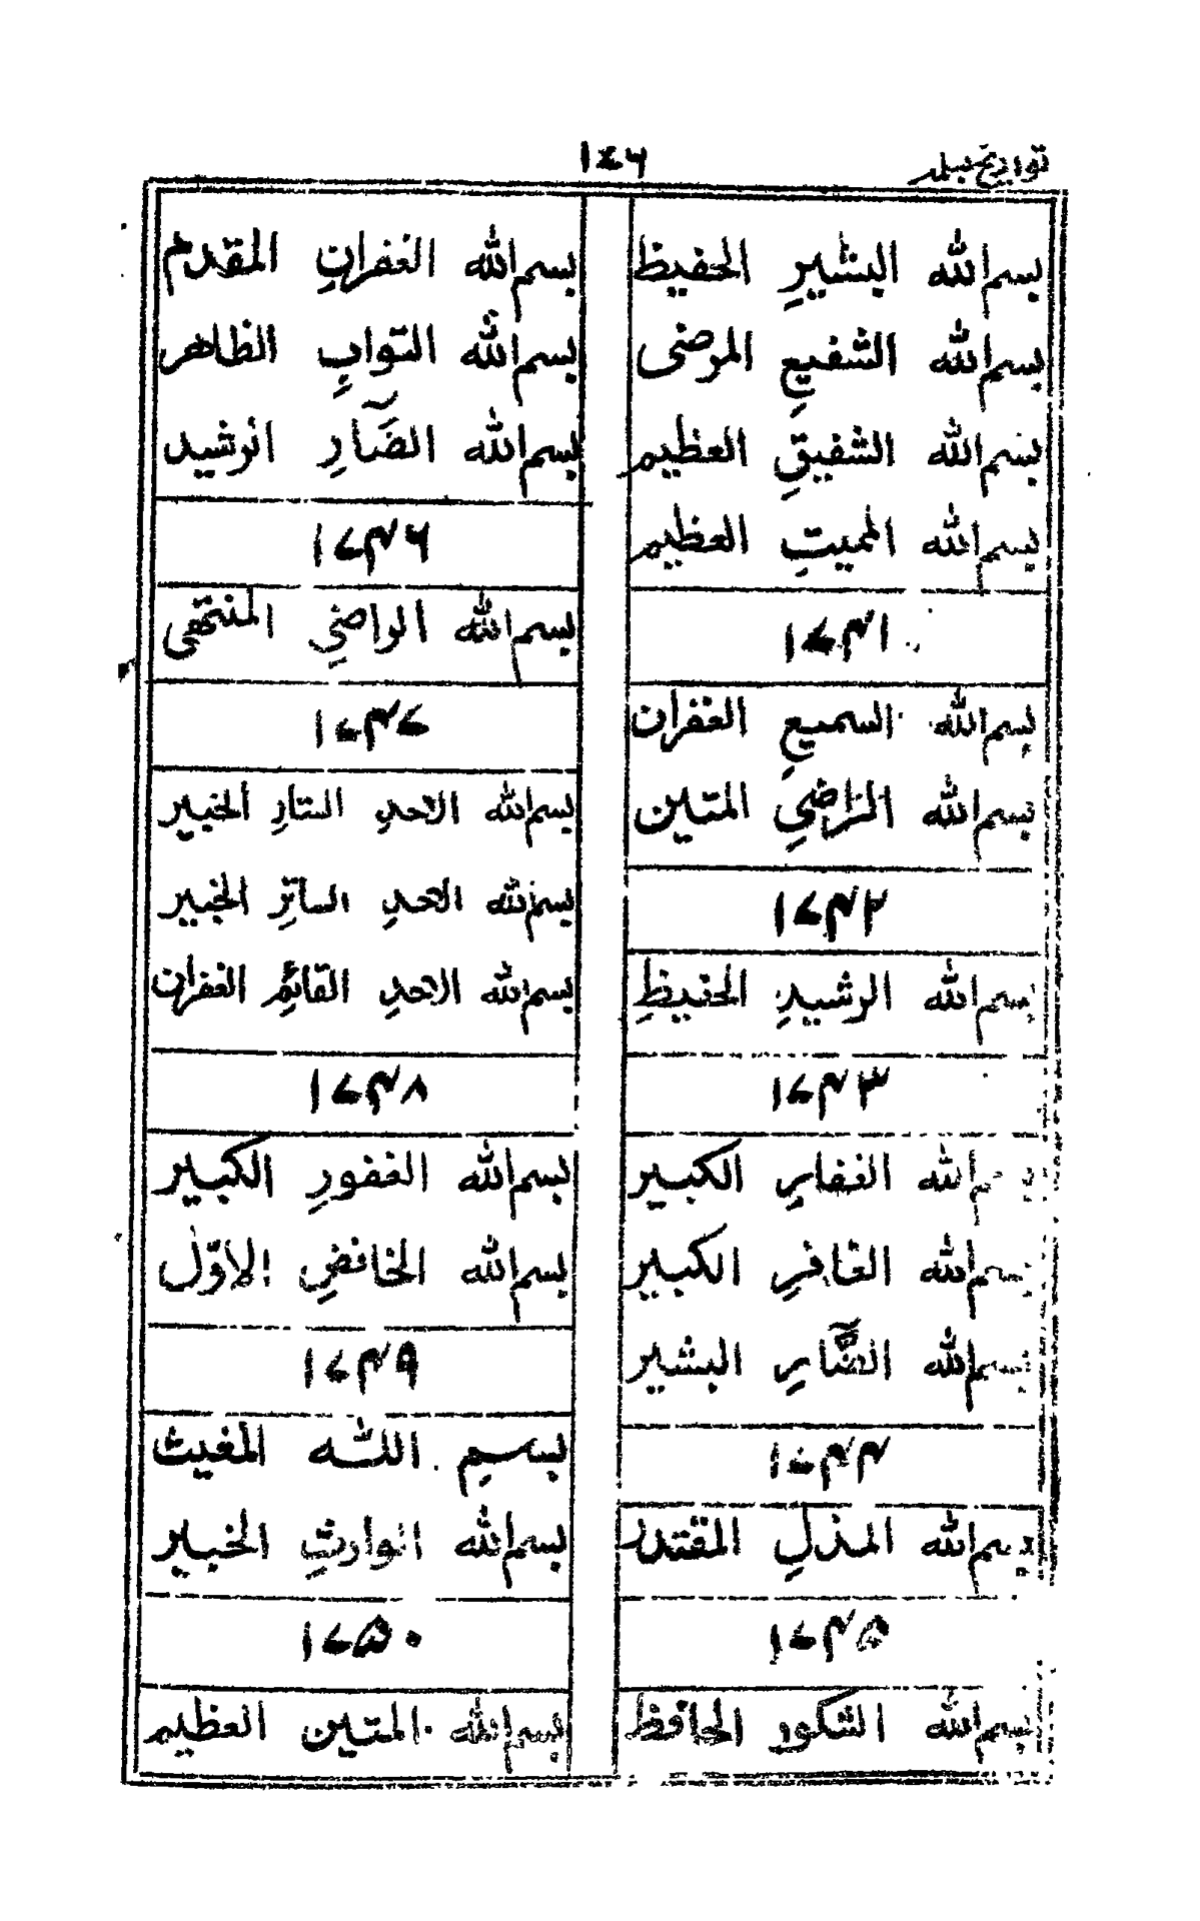 تواریخ بیلدر
۱۴۶
بسم الله البشيرِ الحفيظ
بسم الله الشفيعِ المرضى
بسم الله الشفيقِ العظيم
بسم الله المميتِ العظيم
۱۷۴۱
بسم الله السميعِ الغفران
بسم الله الراضيِ المتين
۱۷۴۲
بسم الله الرشيدِ الحفيظِ
۱۷۴۳
بسم الله الغفارِ الكبير
بسم الله الغافرِ الكبير
بسم الله الضّارِ البشير
۱۷۴۴
بسم الله المذلِ المقتدر
۱۷۴۵
بسم الله الشكور الحافظ
بسم الله الغفرانِ المقدم
بسم الله التوابِ الظاهر
بسم الله الضَآرِ الرشيد
۱۷۴۶
بسم الله الراضيِ المنتقى
۱۷۴۷
بسم الله الاحدِ الستارِ الخبير
بسم الله الاحدِ الساترِ الخبير
بسم الله الاحدِ القائمِ الغفران
۱۷۴۸
بسم الله الغفورِ الكبير
بسم الله الخافضِ الاوّل
۱۷۴۹
بسمِ اللــه المغيث
بسم الله الوارثِ الخبير
۱۷۵۰
بسم الله المتين العظيم